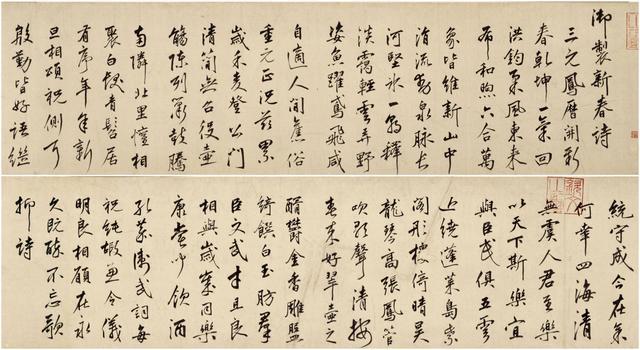 御製新春詩
三元鳳曆開新
春乾坤一氣回
洪鈞風東来
布和煦六合萬
象皆維新山中
流動泉脉长
河堅氷一為釋
淡靄輕雲弄野
姿魚躍鳶飛咸
自適人間舊俗
重元正況兹累
歲禾麥登公門
清閒無召役壺
觴陳列簫鼓騰
南隣北里懽相
聚白髮青髫居
有序年年新
旦相頌祝側耳
殷勤皆好語繼
統守成今在余
何幸四海清
無虞人君至樂
以天下斯樂宜
與臣民俱五雲
近繞蓬萊島紫
閣彤樓停曙
龍琴高張鳳管
吹歌聲清按
春来好翠壺之
醑欝金香雕盤
綺饌白玉肪羣
臣文武才且良
相與歲歲同樂
康飲酒
武詞每
祝純嘏思令儀
明良相顧在永
久既醉不忘歌
抑詩